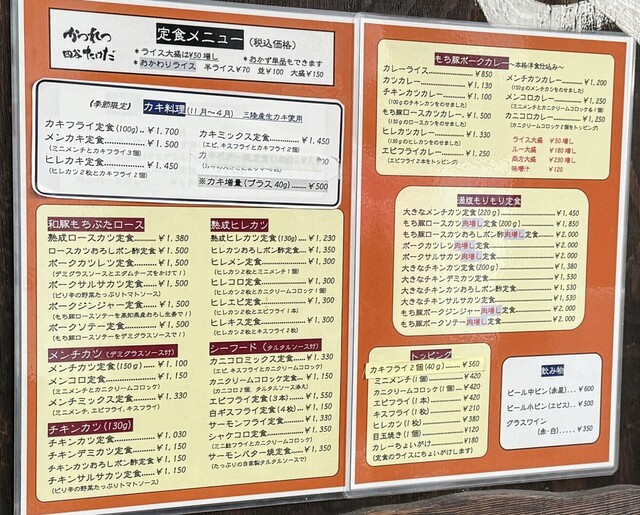 かつれつ
四谷たけだ
定食メニュー（税込価格）
＊ライス大盛は¥50増し ＊おかず単品もできます
＊おかわりライス 半ライス¥70 並¥100 大盛¥150
（季節限定）カキ料理（11月～4月） 三陸産生カキ使用
カキフライ定食(100g)…¥1,700
メンカキ定食…¥1,500
（ミニメンチとカキフライ3個）
ヒレカキ定食…¥1,450
（ヒレカツ2枚とカキフライ2個）
カキミックス定食…¥1,450
（エビ、キスフライとカキフライ2個）
※カキ増量（プラス40g）…¥500
和豚もちぶたロース
熟成ロースカツ定食…¥1,380
ロースカツおろしポン酢定食…¥1,500
ポークカツレツ定食…¥1,500
（デミグラスソースとエダムチーズをかけて！）
ポークサルサカツ定食…¥1,500
（ピリ辛の野菜たっぷりトマトソース）
ポークジンジャー定食…¥1,500
（もち豚ロースソテーを高知県産おろし生姜で！）
ポークソテー定食…¥1,500
（もち豚ロースソテーをデミグラスソースで！）
メンチカツ（デミグラスソース付）
メンチカツ定食(150g)…¥1,100
メンコロ定食…¥1,150
（ミニメンチとカニクリームコロッケ）
メンチミックス定食…¥1,330
（ミニメンチ、エビフライ、キスフライ）
チキンカツ(130g)
チキンカツ定食…¥1,030
チキンデミカツ定食…¥1,150
チキンカツおろしポン酢定食…¥1,150
チキンサルサカツ定食…¥1,150
（ピリ辛の野菜たっぷりトマトソース）
熟成ヒレカツ
熟成ヒレカツ定食(130g)…¥1,230
ヒレカツおろしポン酢定食…¥1,350
ヒレメン定食…¥1,300
（ヒレカツ2枚とミニメンチ1個）
ヒレコロ定食…¥1,300
（ヒレカツ2枚とカニクリームコロッケ1個）
ヒレエビ定食…¥1,300
（ヒレカツ2枚とエビフライ1本）
ヒレキス定食…¥1,300
（ヒレカツ2枚とキスフライ2枚）
シーフード（タルタルソース付）
カニコロミックス定食…¥1,330
（エビ、キスフライとカニクリームコロッケ）
カニクリームコロッケ定食…¥1,150
エビフライ定食(3本)…¥1,550
白ギスフライ定食(4枚)…¥1,150
サーモンフライ定食…¥1,330
シャケコロ定食…¥1,300
（ミニ鮭フライとカニクリームコロッケ）
サーモンバター焼定食…¥1,350
（たっぷりの自家製タルタルソースで）
もち豚ポークカレー～本格洋食仕込み～
カレーライス…¥850
カツカレー…¥1,130
チキンカツカレー…¥1,100
（130gのチキンカツをのせました）
もち豚ロースカツカレー…¥1,500
（130gのロースカツをのせました）
ヒレカツカレー…¥1,330
（130gのヒレカツをのせました）
エビフライカレー…¥1,250
（エビフライ2本をトッピング）
メンチカツカレー…¥1,200
（150gのメンチカツをのせました）
メンコロカレー…¥1,250
（ミニメンチとカニクリームコロッケ各1個）
カニコロカレー…¥1,250
（カニクリームコロッケ2個をトッピング）
ライス大盛 ¥50増し
ルー大盛 ¥180増し
両方大盛 ¥230増し
味噌汁 ¥120
満腹もりもり定食
大きなメンチカツ定食(220g)…¥1,450
もち豚ロースカツ肉増し定食(200g)…¥1,850
もち豚ロースカツおろしポン酢肉増し定食…¥2,000
ポークカツレツ肉増し定食…¥2,000
ポークサルサカツ肉増し定食…¥2,000
大きなチキンカツ定食(200g)…¥1,380
大きなチキンデミカツ定食…¥1,530
大きなチキンカツおろしポン酢定食…¥1,530
大きなチキンサルサカツ定食…¥1,530
もち豚ポークジンジャー肉増し定食…¥2,000
もち豚ポークソテー肉増し定食…¥2,000
トッピング
カキフライ2個(40g)…¥560
ミニメンチ(1個)…¥420
カニクリームコロッケ(1個)…¥420
エビフライ(1本)…¥420
キスフライ(1枚)…¥210
ヒレカツ(1枚)…¥380
目玉焼き(1個)…¥120
カレーちょいがけ…¥180
（定食のライスにちょいがけします）
飲み物
ビール中ビン(赤星)…¥600
ビール小ビン(ヱビス)…¥500
グラスワイン
（赤・白）…¥350